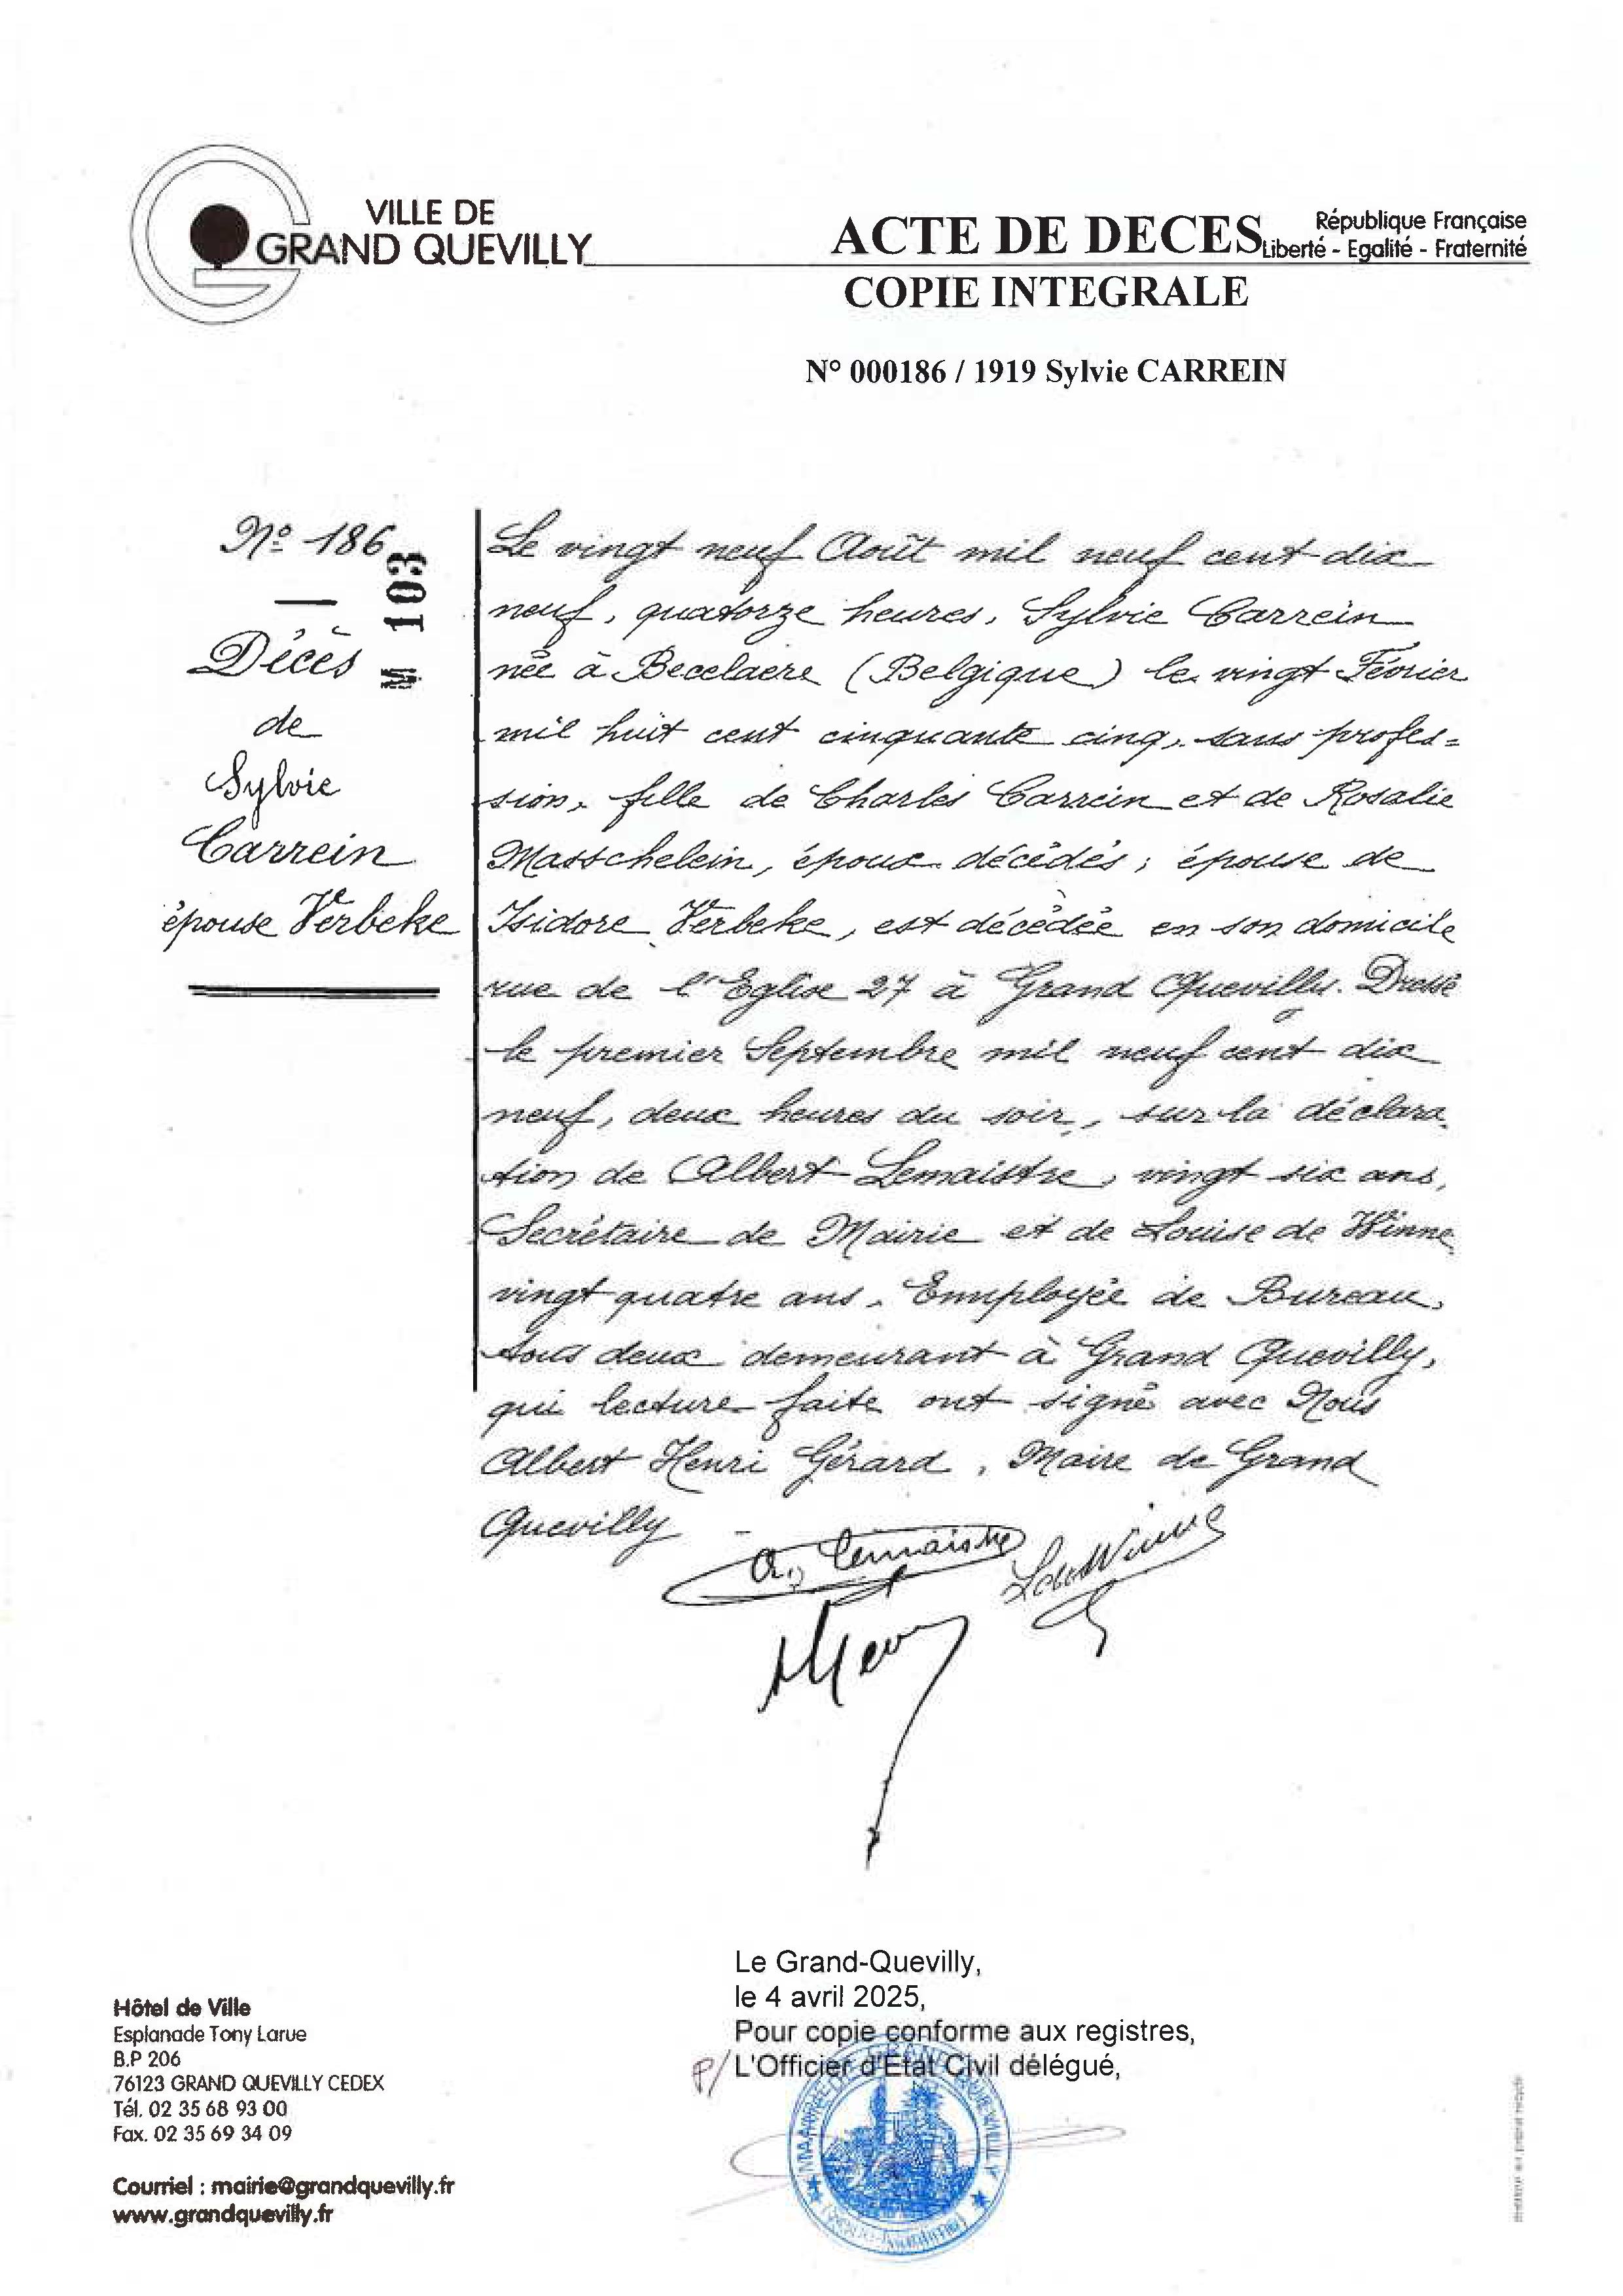 VILLE DE
GRAND QUEVILLY
ACTE DE DECES
République Française
Liberté - Egalité - Fraternité
COPIE INTEGRALE
N° 000186 / 1919 Sylvie CARREIN
Nº 186
103
Décès
de
Sylvie
Carrein
épouse Verbeke
Le vingt neuf Août mil neuf cent dix
neuf, quatorze heures, Sylvie Carrein
née à Becelaere (Belgique) le vingt Février
mil huit cent cinquante cinq, sans profes=
sion, fille de Charles Carrein et de Rosalie
Masschelein, époux décédés; épouse de
Isidore Verbeke, est décédée en son domicile
rue de l'Eglise 27 à Grand Quevilly. Dressé
le premier Septembre mil neuf cent dix
neuf, deux heures du soir, sur la déclara
tion de Albert Lemaistre, vingt six ans,
Secrétaire de Mairie et de Louise de Winne
vingt quatre ans, Employée de Bureau,
tous deux demeurant à Grand Quevilly,
qui lecture faite ont signé avec Nous
Albert Henri Gérard, Maire de Grand
Quevilly
A. Lemaistre
Le Grand-Quevilly,
le 4 avril 2025,
Pour copie conforme aux registres,
P/ L'Officier d'Etat Civil délégué,
MAIRIE DE GRAND QUEVILLY
Hôtel de Ville
Esplanade Tony Larue
B.P 206
76123 GRAND QUEVILLY CEDEX
Tél. 02 35 68 93 00
Fax. 02 35 69 34 09
Courriel : mairie@grandquevilly.fr
www.grandquevilly.fr